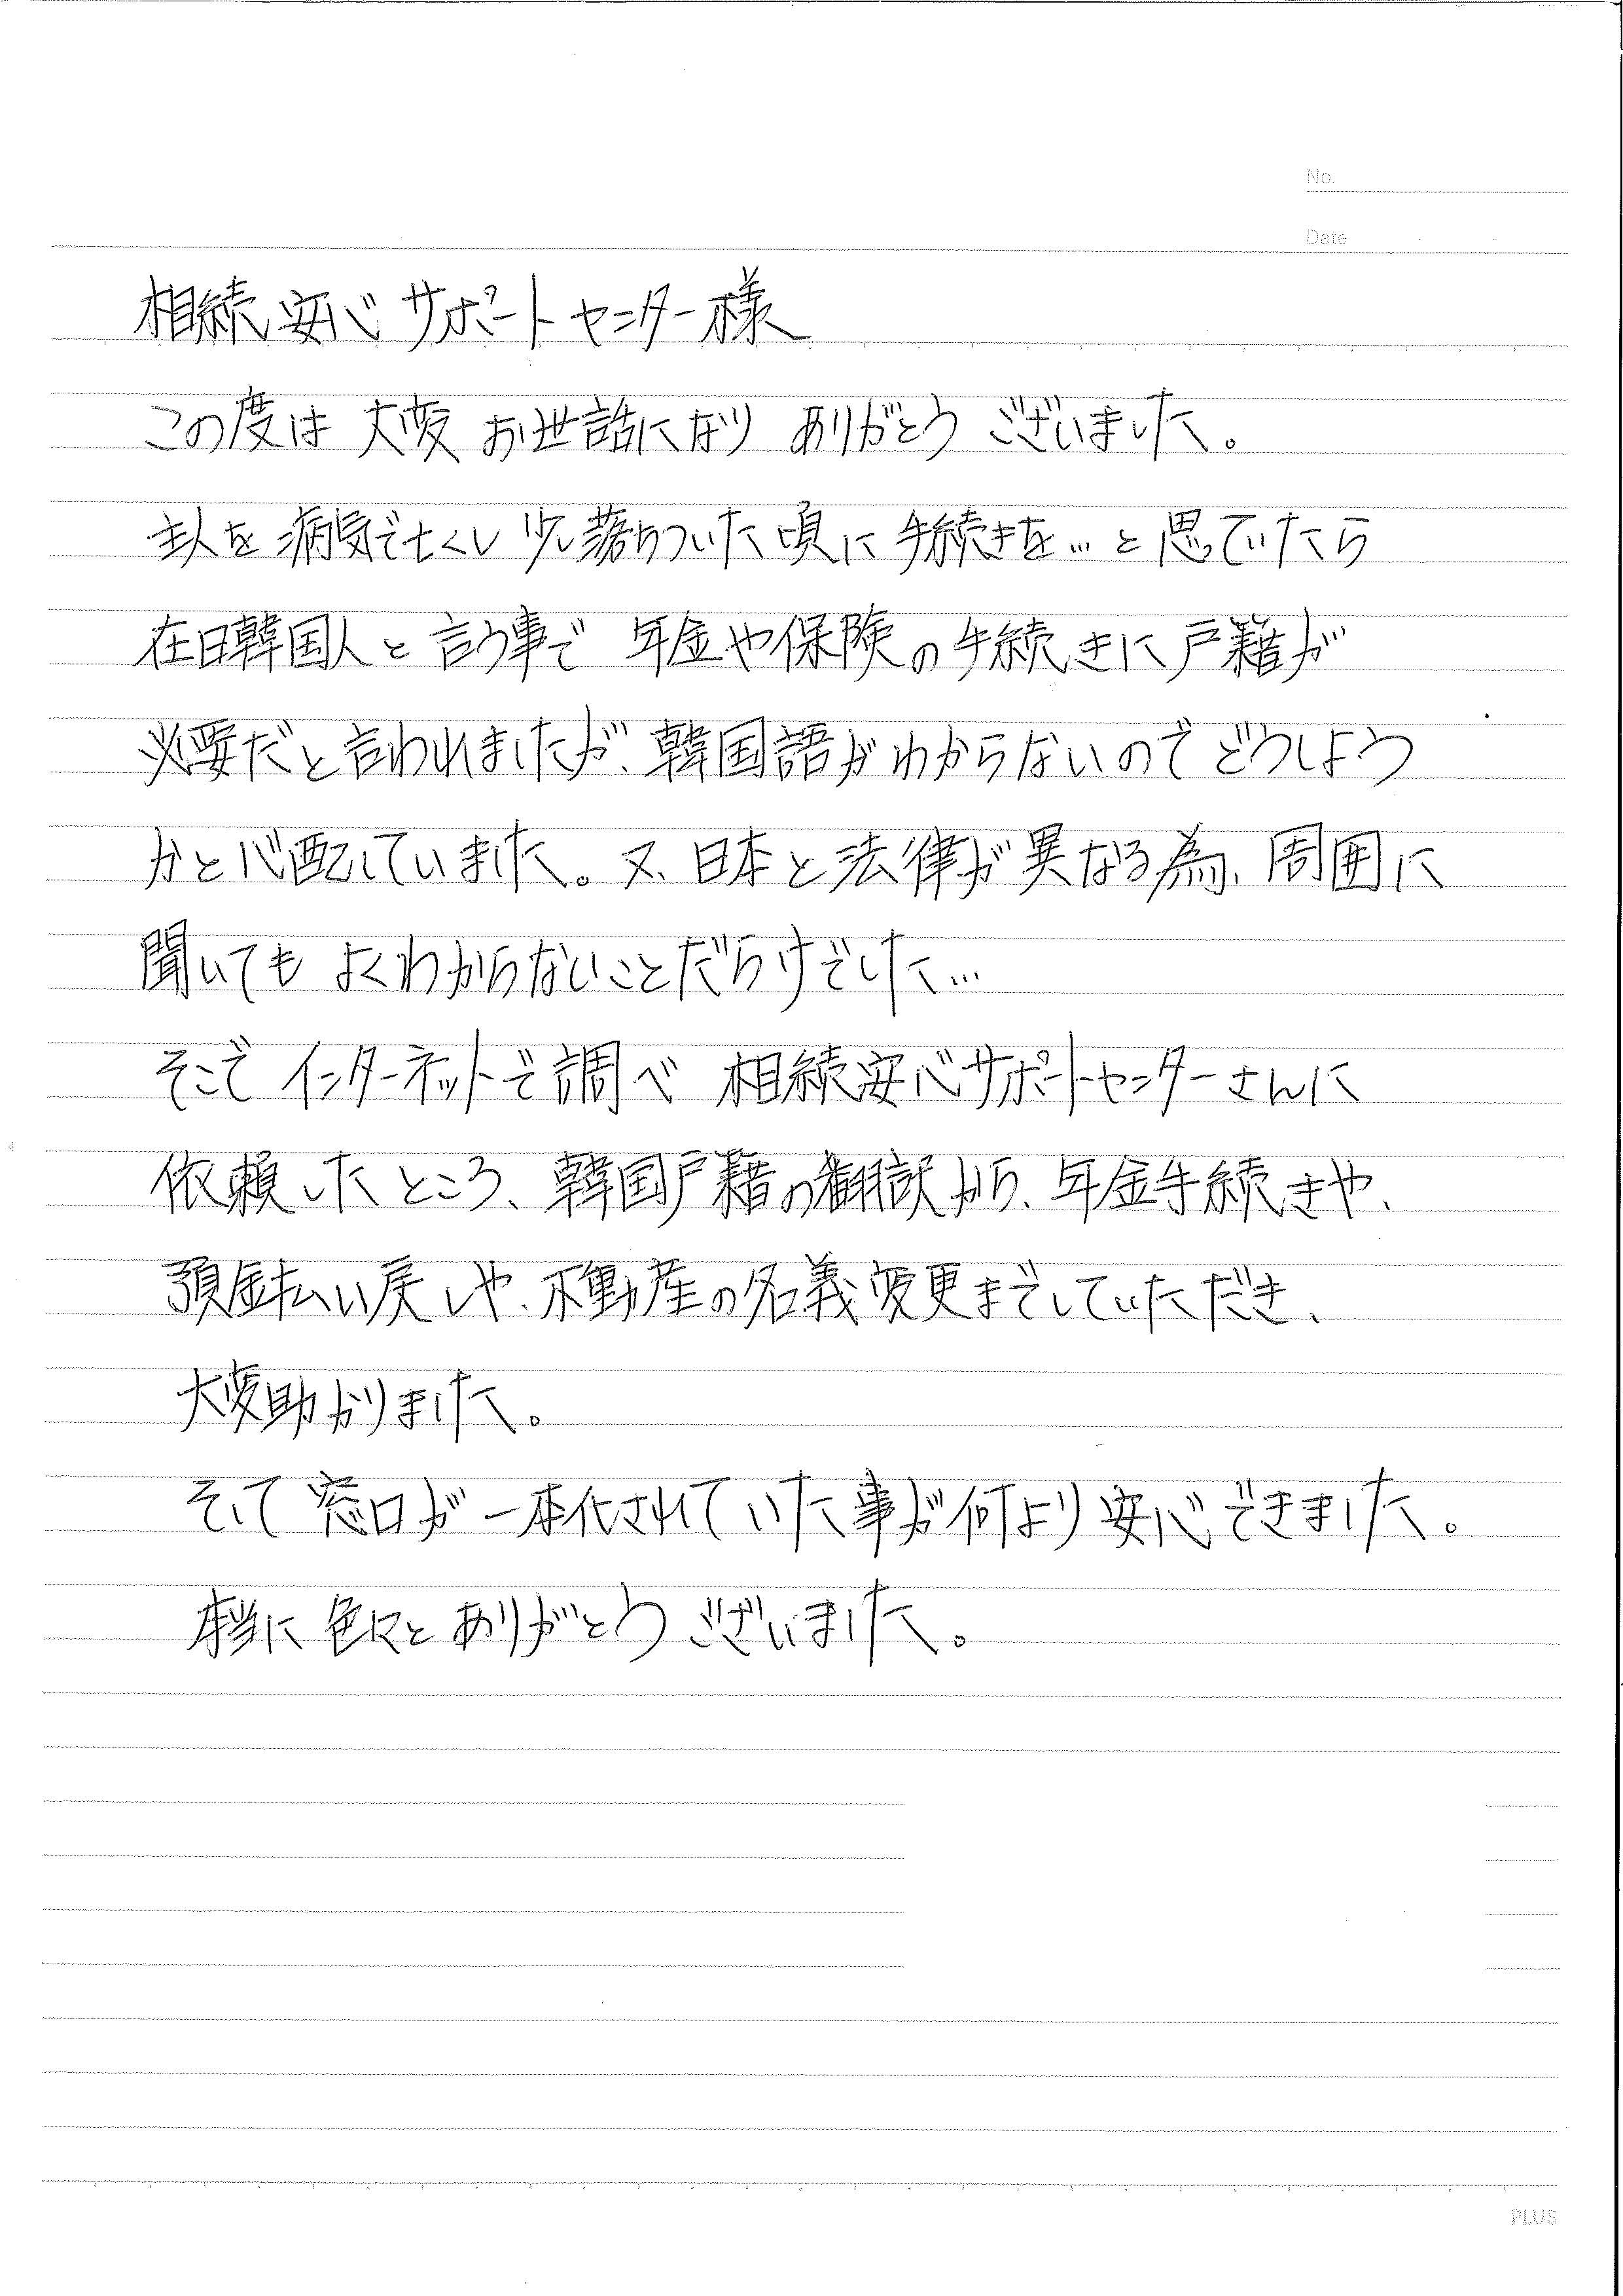 No.
Date
相続安心サポートセンター様
この度は 大変 お世話になり ありがとう ございました。
主人を 病気で亡くし 少し落ちついた頃に 手続きを…と思っていたら
在日韓国人と言う事で 年金や保険の手続きに戸籍が
必要だと言われましたが、韓国語がわからないので どうしよう
かと心配していました。又、日本と法律が異なる為、周囲に
聞いても よくわからないことだらけでした…
そこで インターネットで調べ 相続安心サポートセンターさんに
依頼したところ、韓国戸籍の翻訳から、年金手続きや、
預金払い戻しや、不動産の名義変更までしていただき、
大変助かりました。
そして 窓口が一本化されていた事が何より安心できました。
本当に 色々とありがとう ございました。
PLUS